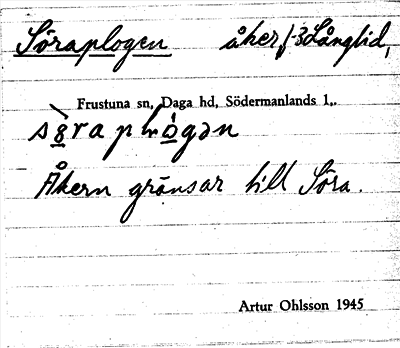 Söraplogen åker f-3 Långlid,
Frustuna sn, Daga hd, Södermanlands l.
Åkern gränsar till Söra.
Artur Ohlsson 1945